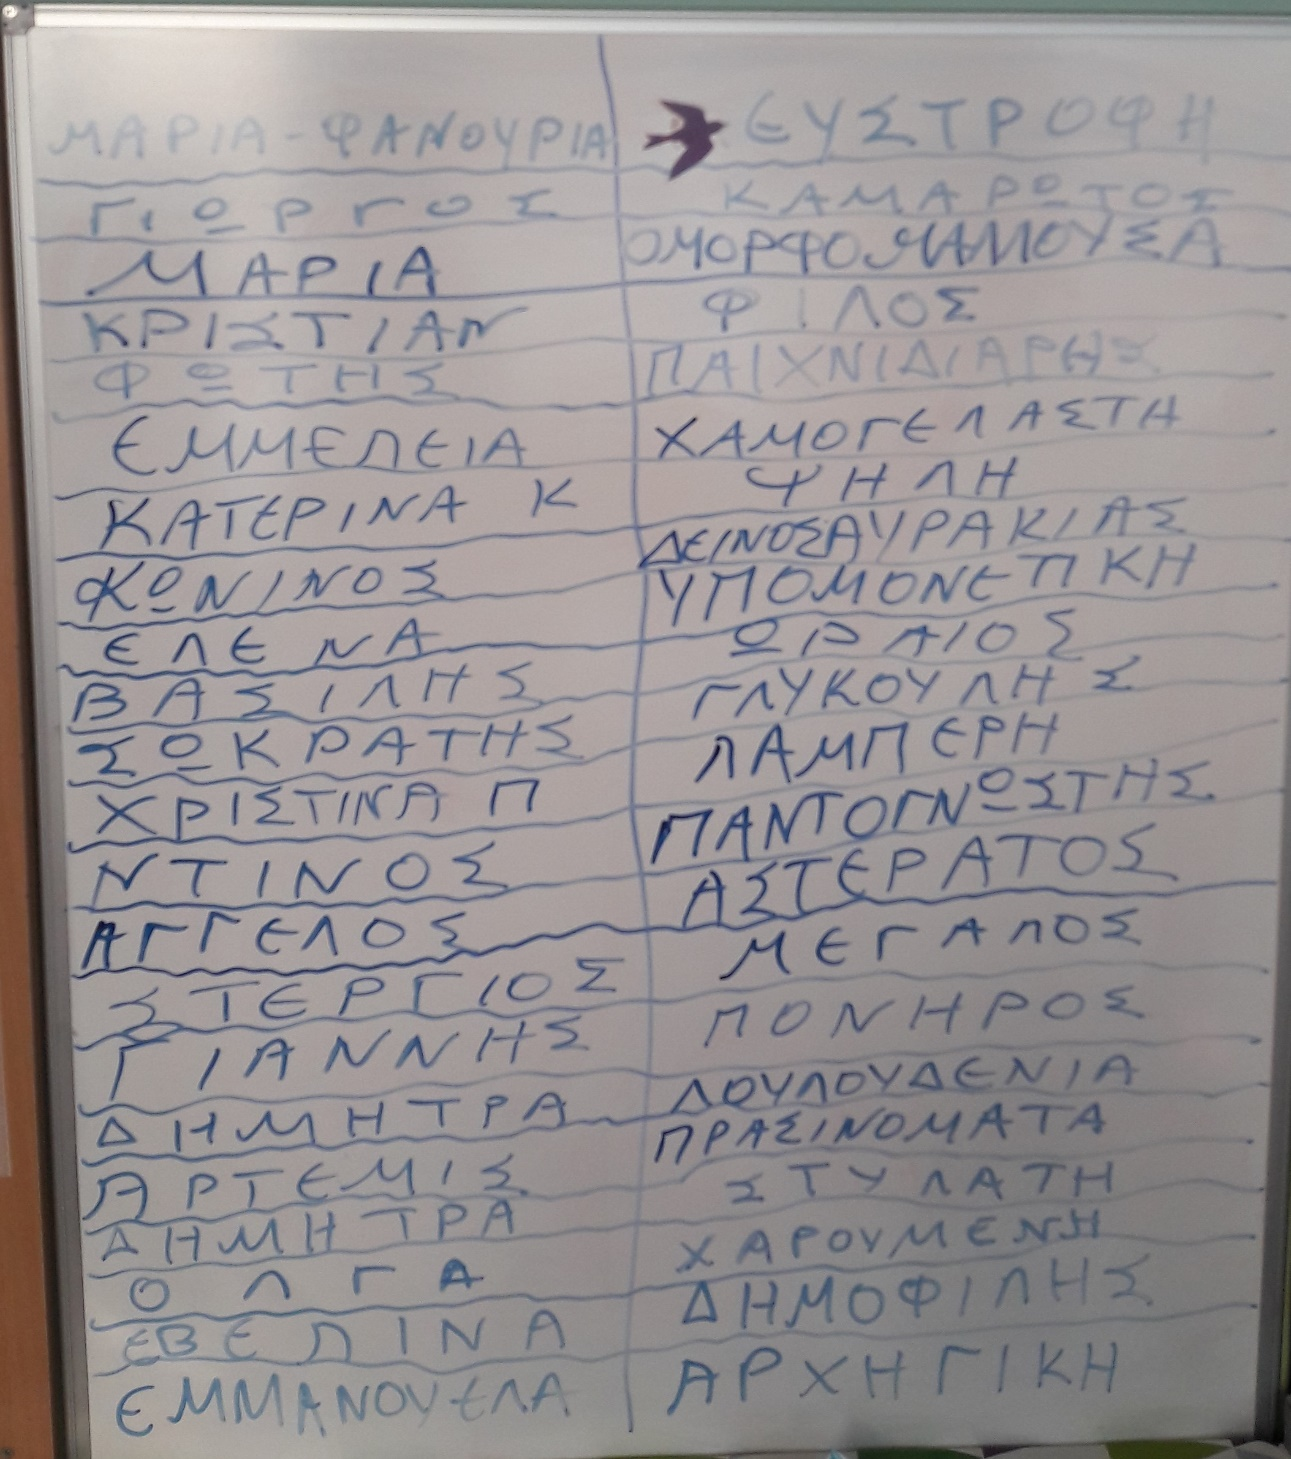 ΜΑΡΙΑ-ΦΑΝΟΥΡΙΑ ΕΥΣΤΡΟΦΗ
ΓΙΩΡΓΟΣ ΚΑΜΑΡΩΤΟΣ
ΜΑΡΙΑ ΟΜΟΡΦΟΜΑΜΟΥΣΑ
ΚΡΙΣΤΙΑΝ ΦΙΛΟΣ
ΦΩΤΗΣ ΠΑΙΧΝΙΔΙΑΡΗΣ
ΕΜΜΕΛΕΙΑ ΧΑΜΟΓΕΛΑΣΤΗ
ΚΑΤΕΡΙΝΑ Κ ΨΗΛΗ
ΚΩΝΙΝΟΣ ΔΕΙΝΟΣΑΥΡΑΚΙΑΣ
ΕΛΕΝΑ ΥΠΟΜΟΝΕΤΙΚΗ
ΒΑΣΙΛΗΣ ΩΡΑΙΟΣ
ΣΩΚΡΑΤΗΣ ΓΛΥΚΟΥΛΗΣ
ΧΡΙΣΤΙΝΑ Π ΛΑΜΠΕΡΗ
ΝΤΙΝΟΣ ΠΑΝΤΟΓΝΩΣΤΗΣ
ΑΓΓΕΛΟΣ ΑΣΤΕΡΑΤΟΣ
ΣΤΕΡΓΙΟΣ ΜΕΓΑΛΟΣ
ΓΙΑΝΝΗΣ ΠΟΝΗΡΟΣ
ΔΗΜΗΤΡΑ ΛΟΥΛΟΥΔΕΝΙΑ
ΑΡΤΕΜΙΣ ΠΡΑΣΙΝΟΜΑΤΑ
ΔΗΜΗΤΡΑ ΣΤΥΛΑΤΗ
ΟΛΓΑ ΧΑΡΟΥΜΕΝΗ
ΕΒΕΛΙΝΑ ΔΗΜΟΦΙΛΗΣ
ΕΜΜΑΝΟΥΕΛΑ ΑΡΧΗΓΙΚΗ